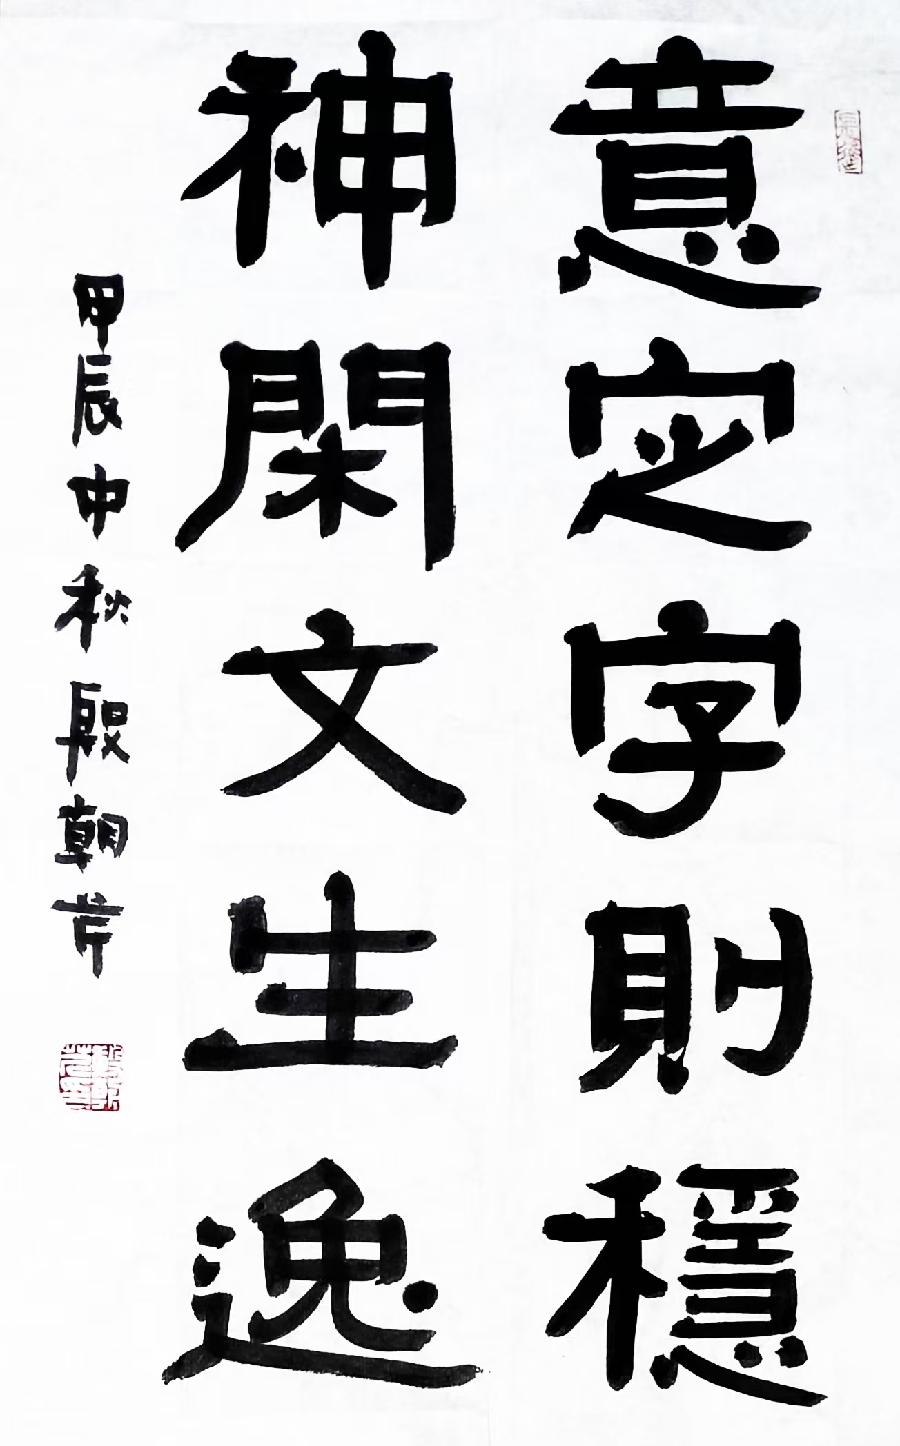 意定字則穩
神閑文生逸
甲辰中秋殷朝芹